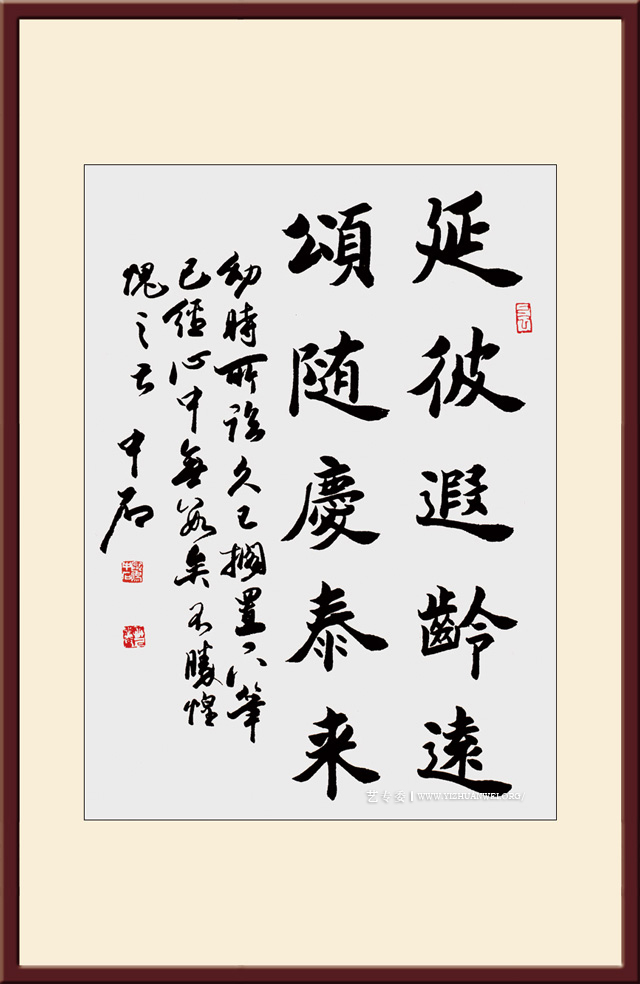 延彼遐齡遠
頌随慶泰来
幼時所詠久已擱置下筆
已經心中無數矣不勝惶
愧之至 中石
艺专委 | WWW.YIZHUANWEI.ORG/